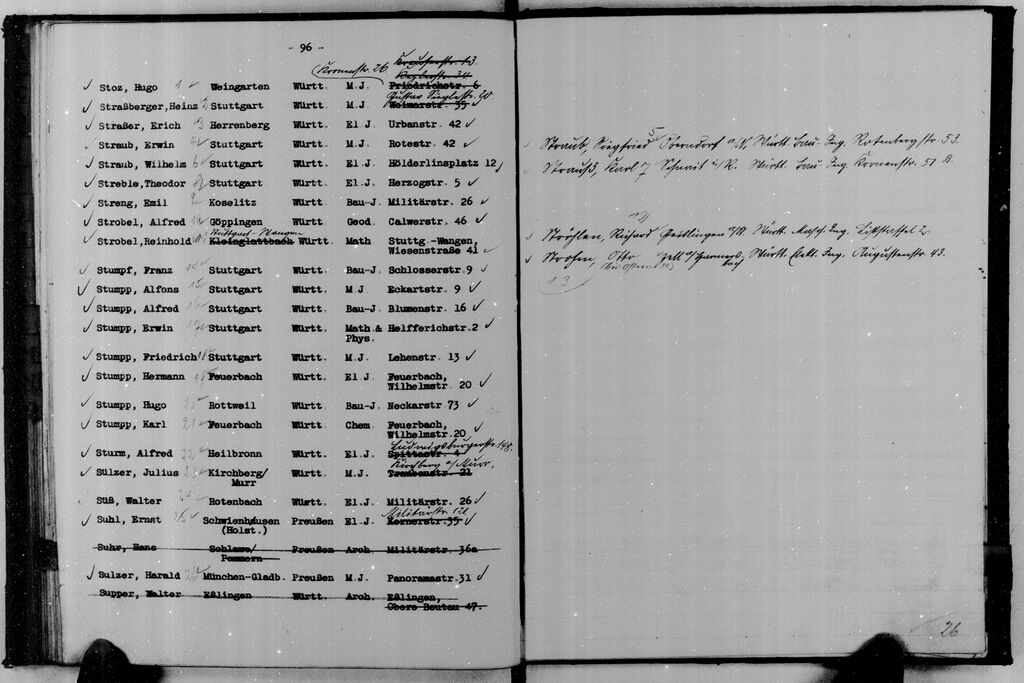 - 96 -
Kronenstr. 26.
Stoz, Hugo 1 Weingarten Württ. M.J. Friedrichstr. 6
Gustav Sieglestr.
Straßberger, Heinz 2 Stuttgart Württ. M.J. Weimarstr. 35
Straßer, Erich 3 Herrenberg Württ. El.J. Urbanstr. 42
Straub, Erwin 4 Stuttgart Württ. M.J. Rotestr. 42
Straub, Wilhelm 6 Stuttgart Württ. El.J. Hölderlinsplatz 12
Streble, Theodor 8 Stuttgart Württ. El.J. Herzogstr. 5
Streng, Emil 9 Koselitz Württ. Bau-J. Militärstr. 26
Strobel, Alfred Göppingen Württ. Geod. Calwerstr. 46
Stuttgart-Wangen
Strobel, Reinhold Kleinglattbach Württ. Math Stuttg.-Wangen,
Wiesenstraße 41
Stumpf, Franz Stuttgart Württ. Bau-J. Schlosserstr. 9
Stumpp, Alfons 15 Stuttgart Württ. M.J. Eckartstr. 9
Stumpp, Alfred 16 Stuttgart Württ. Bau-J. Blumenstr. 16
Stumpp, Erwin 17 Stuttgart Württ. Math.& Helfferichstr. 2
Phys.
Stumpp, Friedrich 18 Stuttgart Württ. M.J. Lehenstr. 13
Stumpp, Hermann 19 Feuerbach Württ. El.J. Feuerbach,
Wilhelmstr. 20
Stumpp, Hugo 20 Rottweil Württ. Bau-J. Neckarstr 73
Stumpp, Karl 21 Feuerbach Württ. Chem. Feuerbach,
Wilhelmstr. 20
Ludwigsburgerstr. 148.
Sturm, Alfred 22 Heilbronn Württ. El.J. Spittastr. 4
Kirchberg a/Murr.
Sülzer, Julius 23 Kirchberg/ Württ. M.J. Traubenstr. 21
Murr
Süß, Walter 24 Rotenbach Württ. El.J. Militärstr. 26
Militärstr. 121
Suhl, Ernst 25 Schwienhusen Preußen El.J. Kernerstr. 35
(Holst.)
Suhr, Hans Schlawe/ Preußen Arch. Militärstr. 36a
Pommern
Sulzer, Harald 26 München-Gladb. Preußen M.J. Panoramastr. 31
Supper, Walter Eßlingen Württ. Arch. Eßlingen,
Obere Beutau 47.
5
Straub, Siegfried Oberndorf a/N. Württ. Bau-Ing. Rotenbergstr 53.
Strauß, Karl 7 Schnait i/R. Württ. Bau-Ing. Kronenstr. 51 A.
12)
Ströhlen, Richard Geislingen a/St Württ. Masch.Ing.
Strohm, Otto Zell a/Harmersbach, Württ. Elekt. Ing. Augustenstr. 43.
13
26